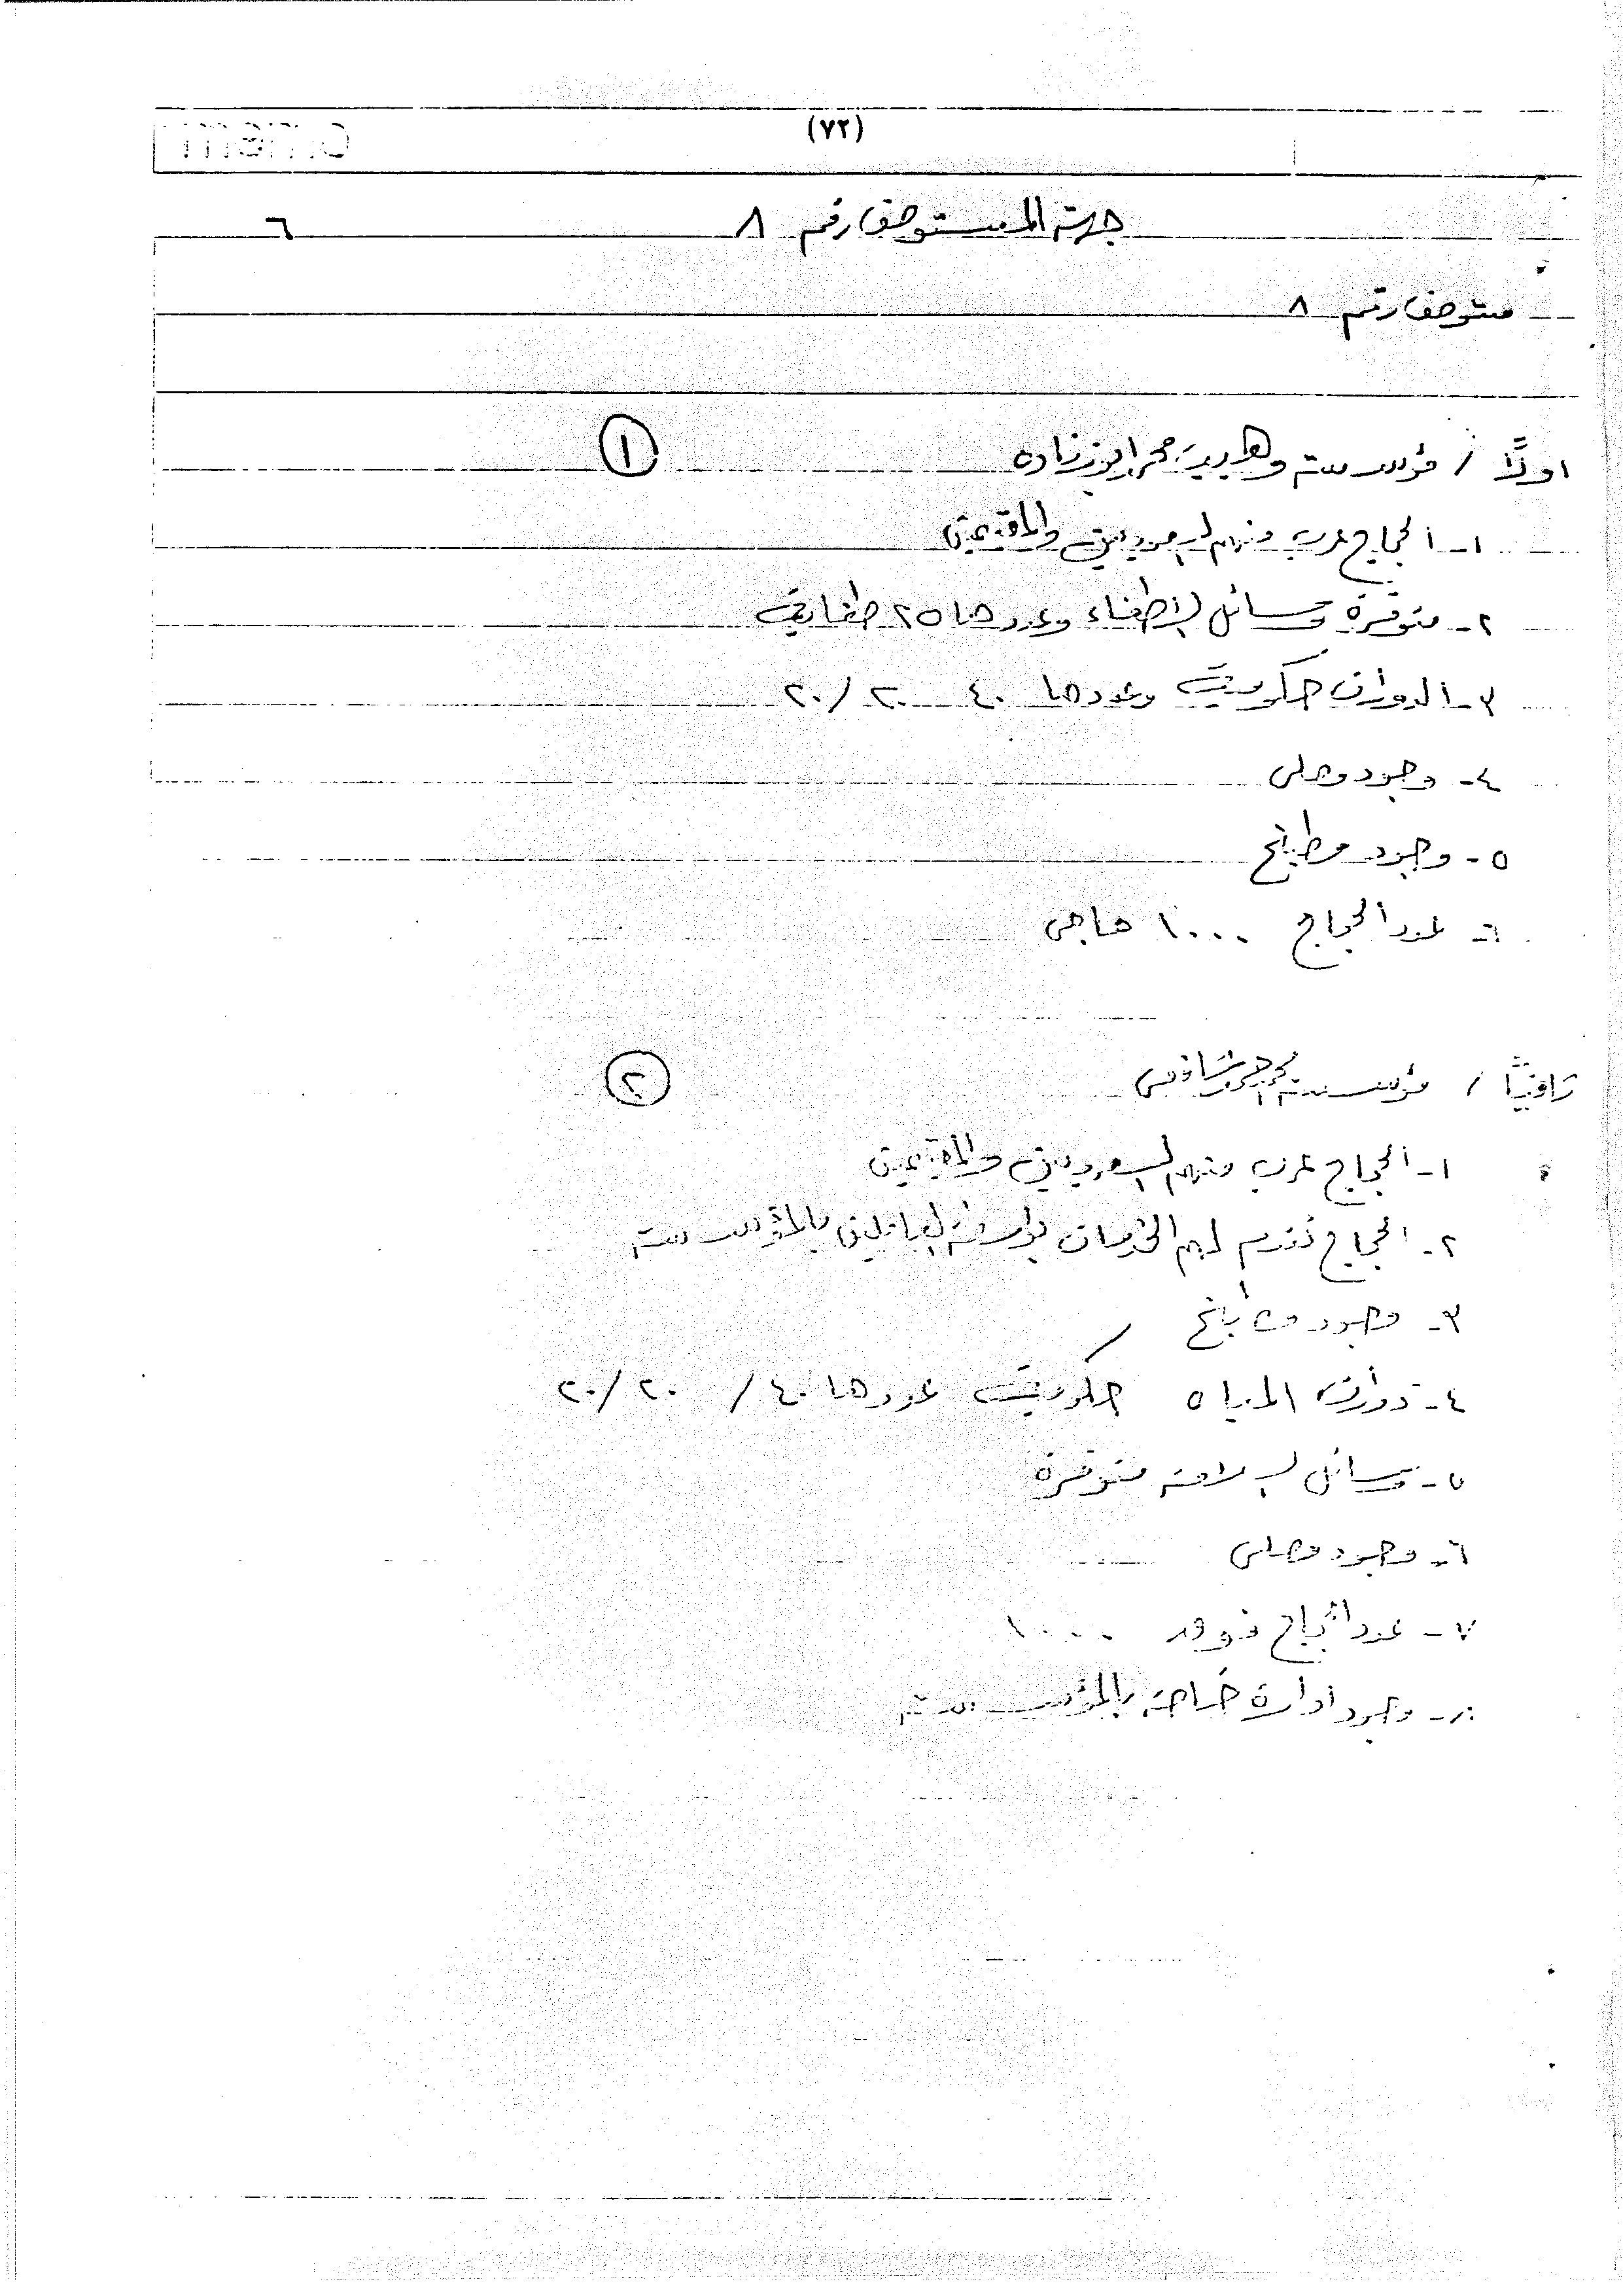 (٧٢)
جهة المستوصف رقم ٨ ٦
مستوصف رقم ٨
اولاً / مؤسسة محمد ١
١- الحجاج عرب ومنهم السعوديين والمقيمين
٢- متوفرة وسائل الإطفاء وعددها ٢٥ طفاية
٣- الدورات حكومية وعددها ٤٠ ٢٠/٢٠
٤- وجود مصلى
٥- وجود مطبخ
٦- عدد الحجاج ١٠٠٠ حاجي
ثانياً / مؤسسة محمد ٢
١- الحجاج عرب ومنهم السعوديين والمقيمين
٢- الحجاج تقدم لهم الخدمات بواسطة العاملين بالمؤسسة
٣- وجود مطبخ
٤- دورات المياه حكومية عددها ٤٠/ ٢٠/٢٠
٥- وسائل السلامة متوفرة
٦- وجود مصلى
٧- عدد الحجاج ١٠٠٠
٨- وجود ادارة خاصة بالمؤسسة